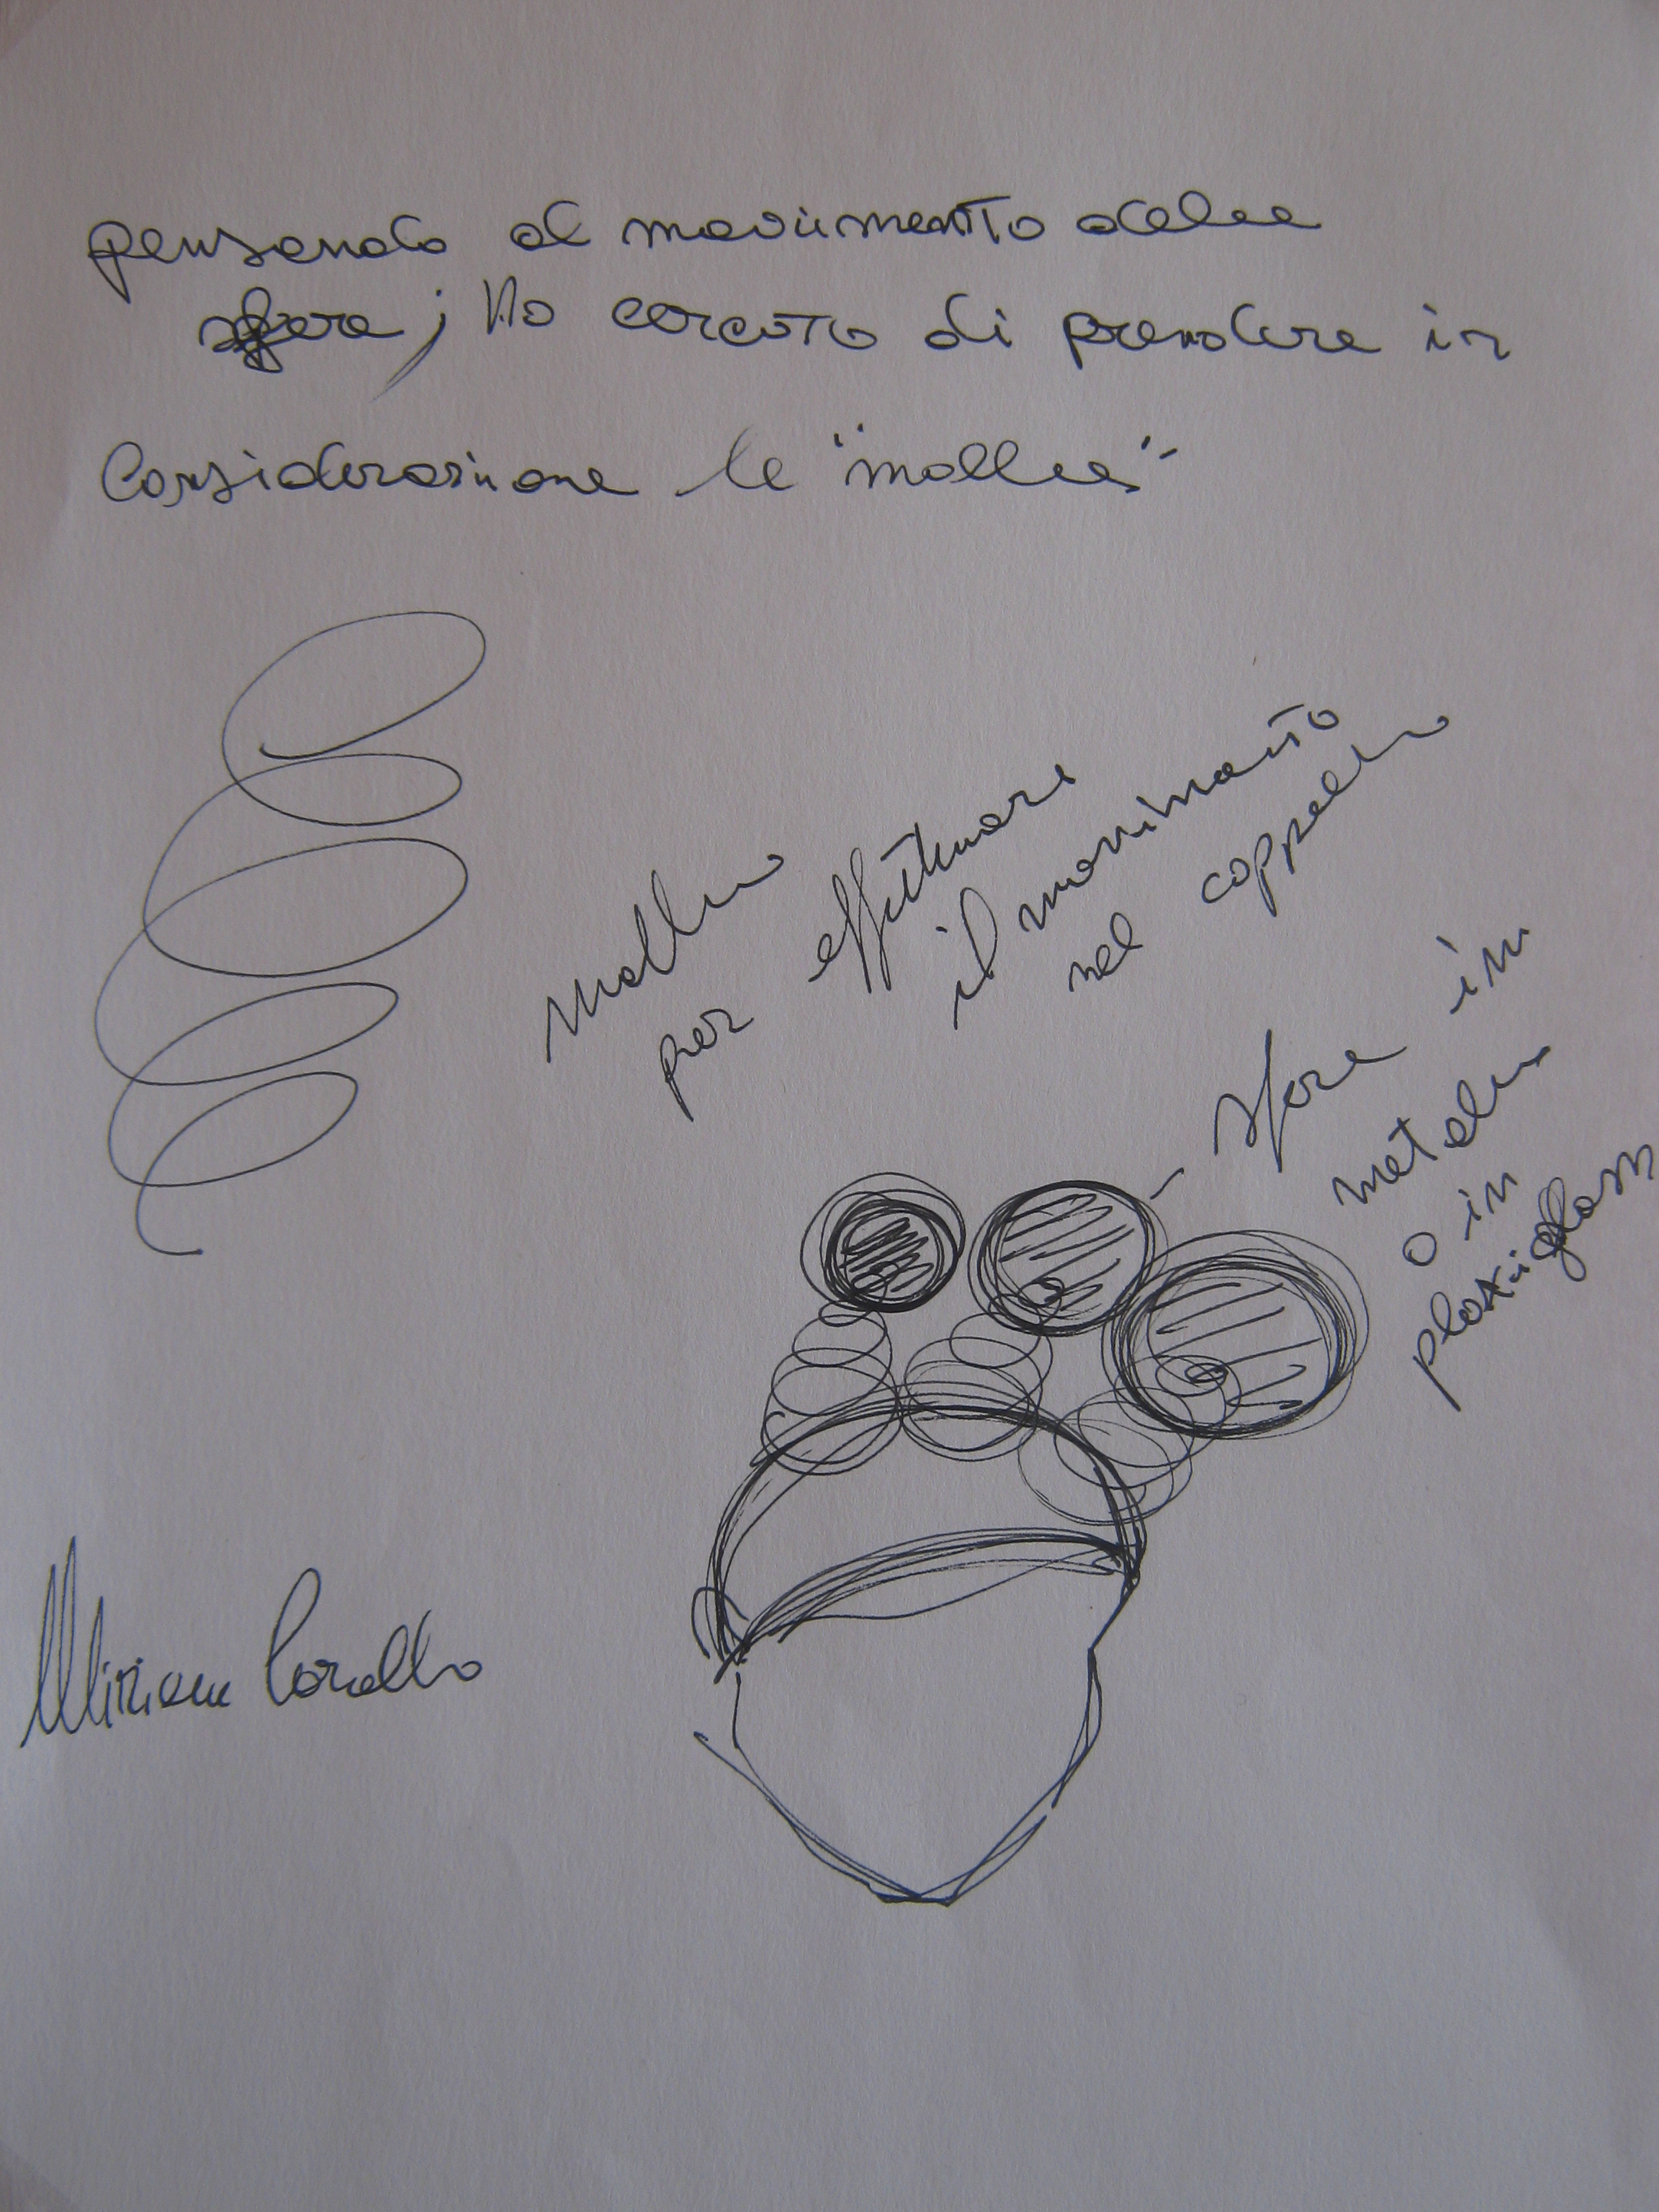 pensando al movimento delle
sfere, ho cercato di prendere in
Considerazione le "molle"
Molle
per effettuare
il movimento
nel cappello
sfere in
metallo
o in
plexiglass
Miriam